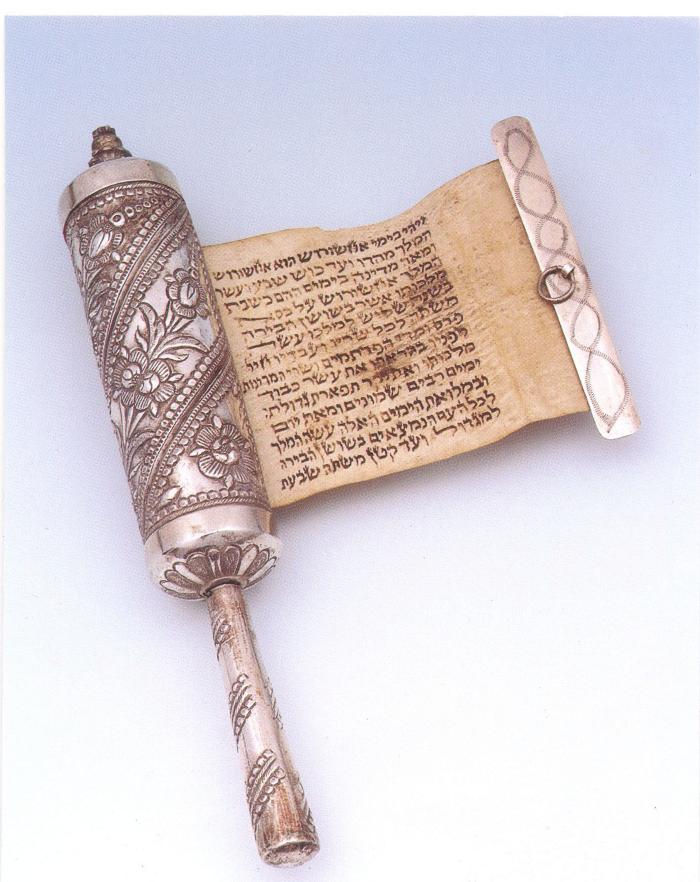 ויהי בימי אחשורוש הוא אחשורוש
המלך מהדו ועד כוש שבע
ומאה מדינה בימים ההם כשבת
המלך אחשורוש על כסא
מלכותו אשר בשושן הבירה
בשנת שלוש למלכו עשה
משתה לכל שריו ועבדיו חיל
פרס ומדי הפרתמים ושרי המדינות
לפניו בהראתו את עשר כבוד
מלכותו ואת יקר תפארת גדולתו
ימים רבים שמונים ומאת יום
ובמלואת הימים האלה עשה המלך
לכל העם הנמצאים בשושן הבירה
למגדול ועד קטן משתה שבעת